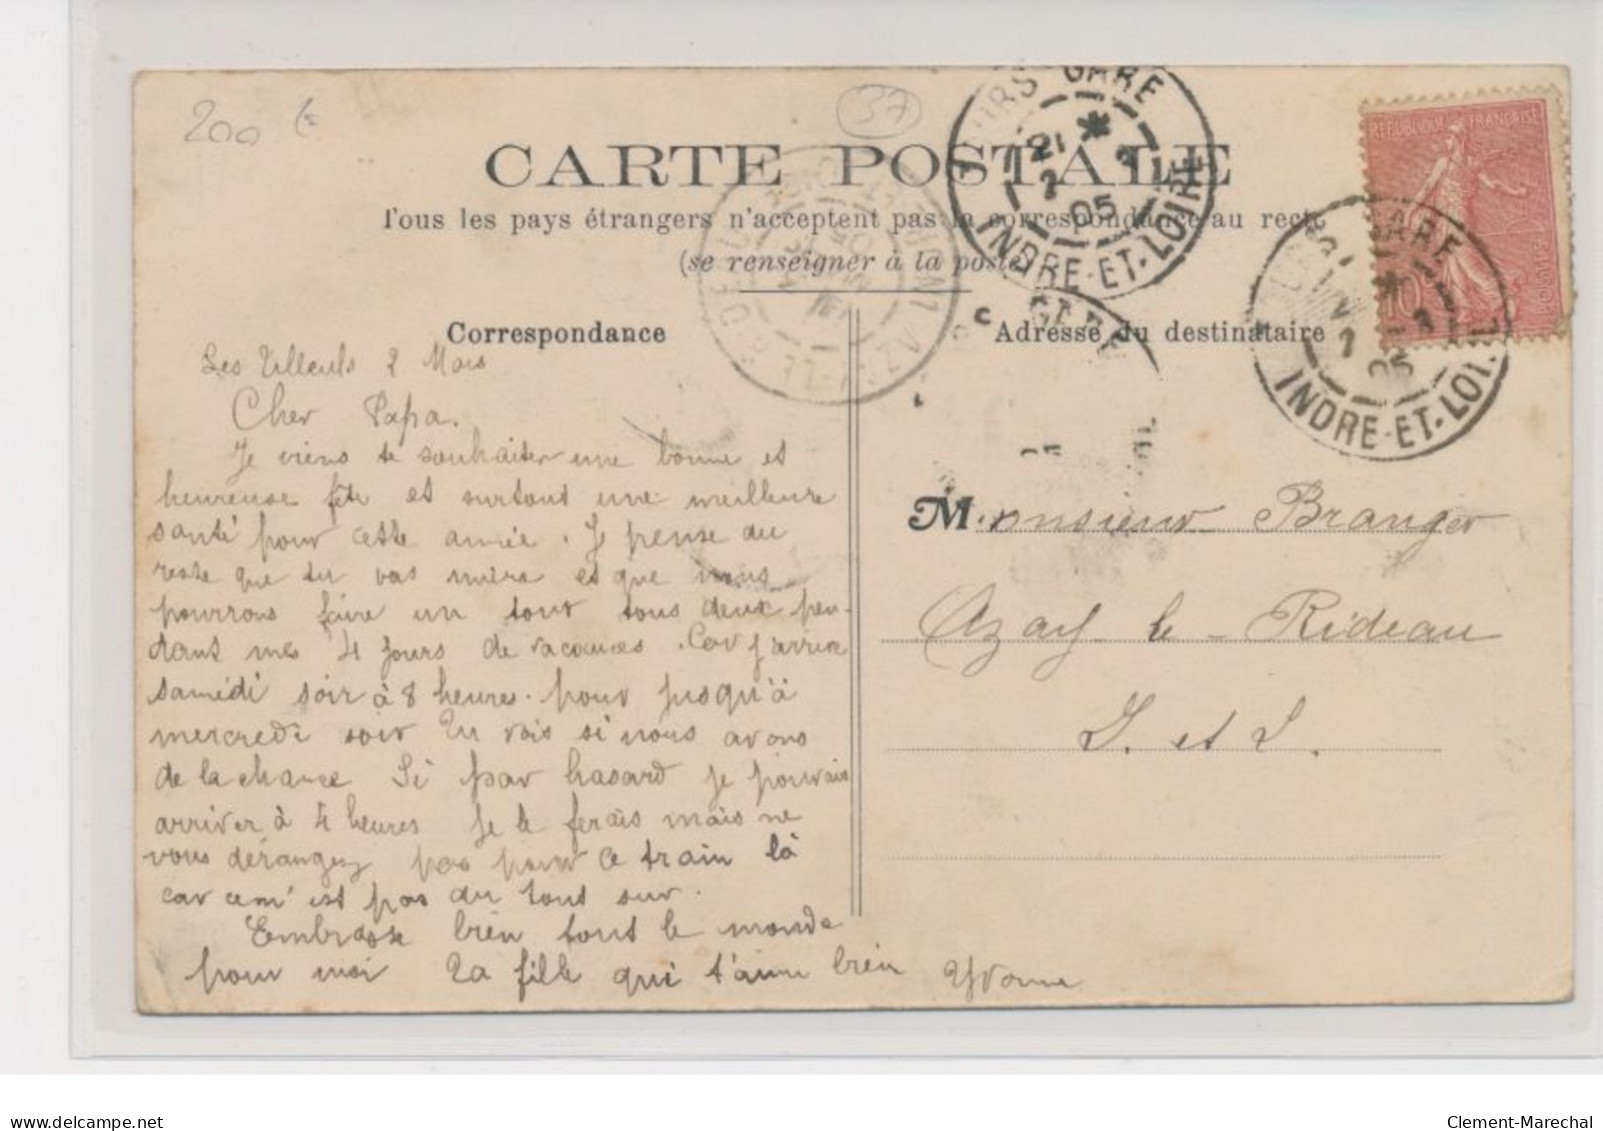 200 €
37
CARTE POSTALE
Tous les pays étrangers n'acceptent pas la correspondance au recto
(se renseigner à la poste)
TOURS-GARE
21 *
2 3
05
INDRE-ET-LOIRE
REPUBLIQUE FRANÇAISE
10c
POSTES
GARE
05
INDRE-ET-LOIRE
AZAY-LE-RIDEAU
Correspondance
Adresse du destinataire
Les Tilleuls 2 Mars
Cher Papa.
Je viens te souhaiter une bonne et
heureuse fête et surtout une meilleure
santé pour cette année. Je pense du
reste que tu vas mieux et que nous
pourrons faire un tour tous deux pen-
dant mes 4 jours de vacances. Car j'arrive
samedi soir à 8 heures. pour jusqu'à
mercredi soir Tu vois si nous avons
de la chance Si par hasard je pouvais
arriver à 4 heures je le ferais mais ne
vous dérangez pas pour ce train là
car ce m'est pas du tout sur.
Embrasse bien tout le monde
pour moi Ta fille qui t'aime bien Yvonne
Monsieur Branger
Azay-le-Rideau
I. et L.
www.delcampe.net
Clement-Marechal